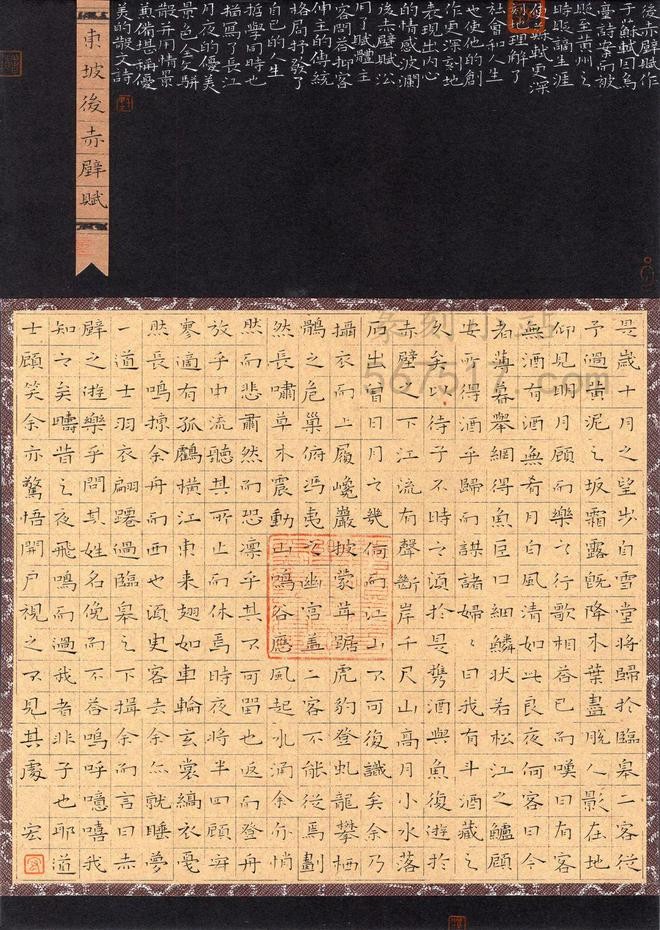 後赤壁賦作
于蘇軾因烏
臺詩案而被
貶至黃州之
時貶謫生涯
使蘇軾更深
刻地理解了
社會和人生
也使他的創
作更深刻地
表現出內心
的情感波瀾
後赤壁賦沿
用了賦體主
客問答抑客
伸主的傳統
格局抒發了
自己的人生
哲學同時也
描寫了長江
月夜的優美
景色全文駢
散並用情景
兼備堪稱優
美的散文詩
東坡後赤壁賦
是歲十月之望步自雪堂將歸於臨皋二客從
予過黃泥之坂霜露既降木葉盡脫人影在地
仰見明月顧而樂之行歌相答已而嘆曰有客
無酒有酒無肴月白風清如此良夜何客曰今
者薄暮舉網得魚巨口細鱗狀若松江之鱸顧
安所得酒乎歸而謀諸婦婦曰我有斗酒藏之
久矣以待子不時之須於是攜酒與魚復遊於
赤壁之下江流有聲斷岸千尺山高月小水落
石出曾日月之幾何而江山不可復識矣余乃
攝衣而上履巉巖披蒙茸踞虎豹登虬龍攀栖
鶻之危巢俯馮夷之幽宮蓋二客不能從焉劃
然長嘯草木震動山鳴谷應風起水涌余亦悄
然而悲肅然而恐凜乎其不可留也返而登舟
放乎中流聽其所止而休焉時夜將半四顧寂
寥適有孤鶴橫江東來翅如車輪玄裳縞衣戛
然長鳴掠余舟而西也須臾客去余亦就睡夢
一道士羽衣翩躚過臨皋之下揖余而言曰赤
壁之遊樂乎問其姓名俛而不答嗚呼噫嘻我
知之矣疇昔之夜飛鳴而過我者非子也耶道
士顧笑余亦驚悟開戶視之不見其處 宏